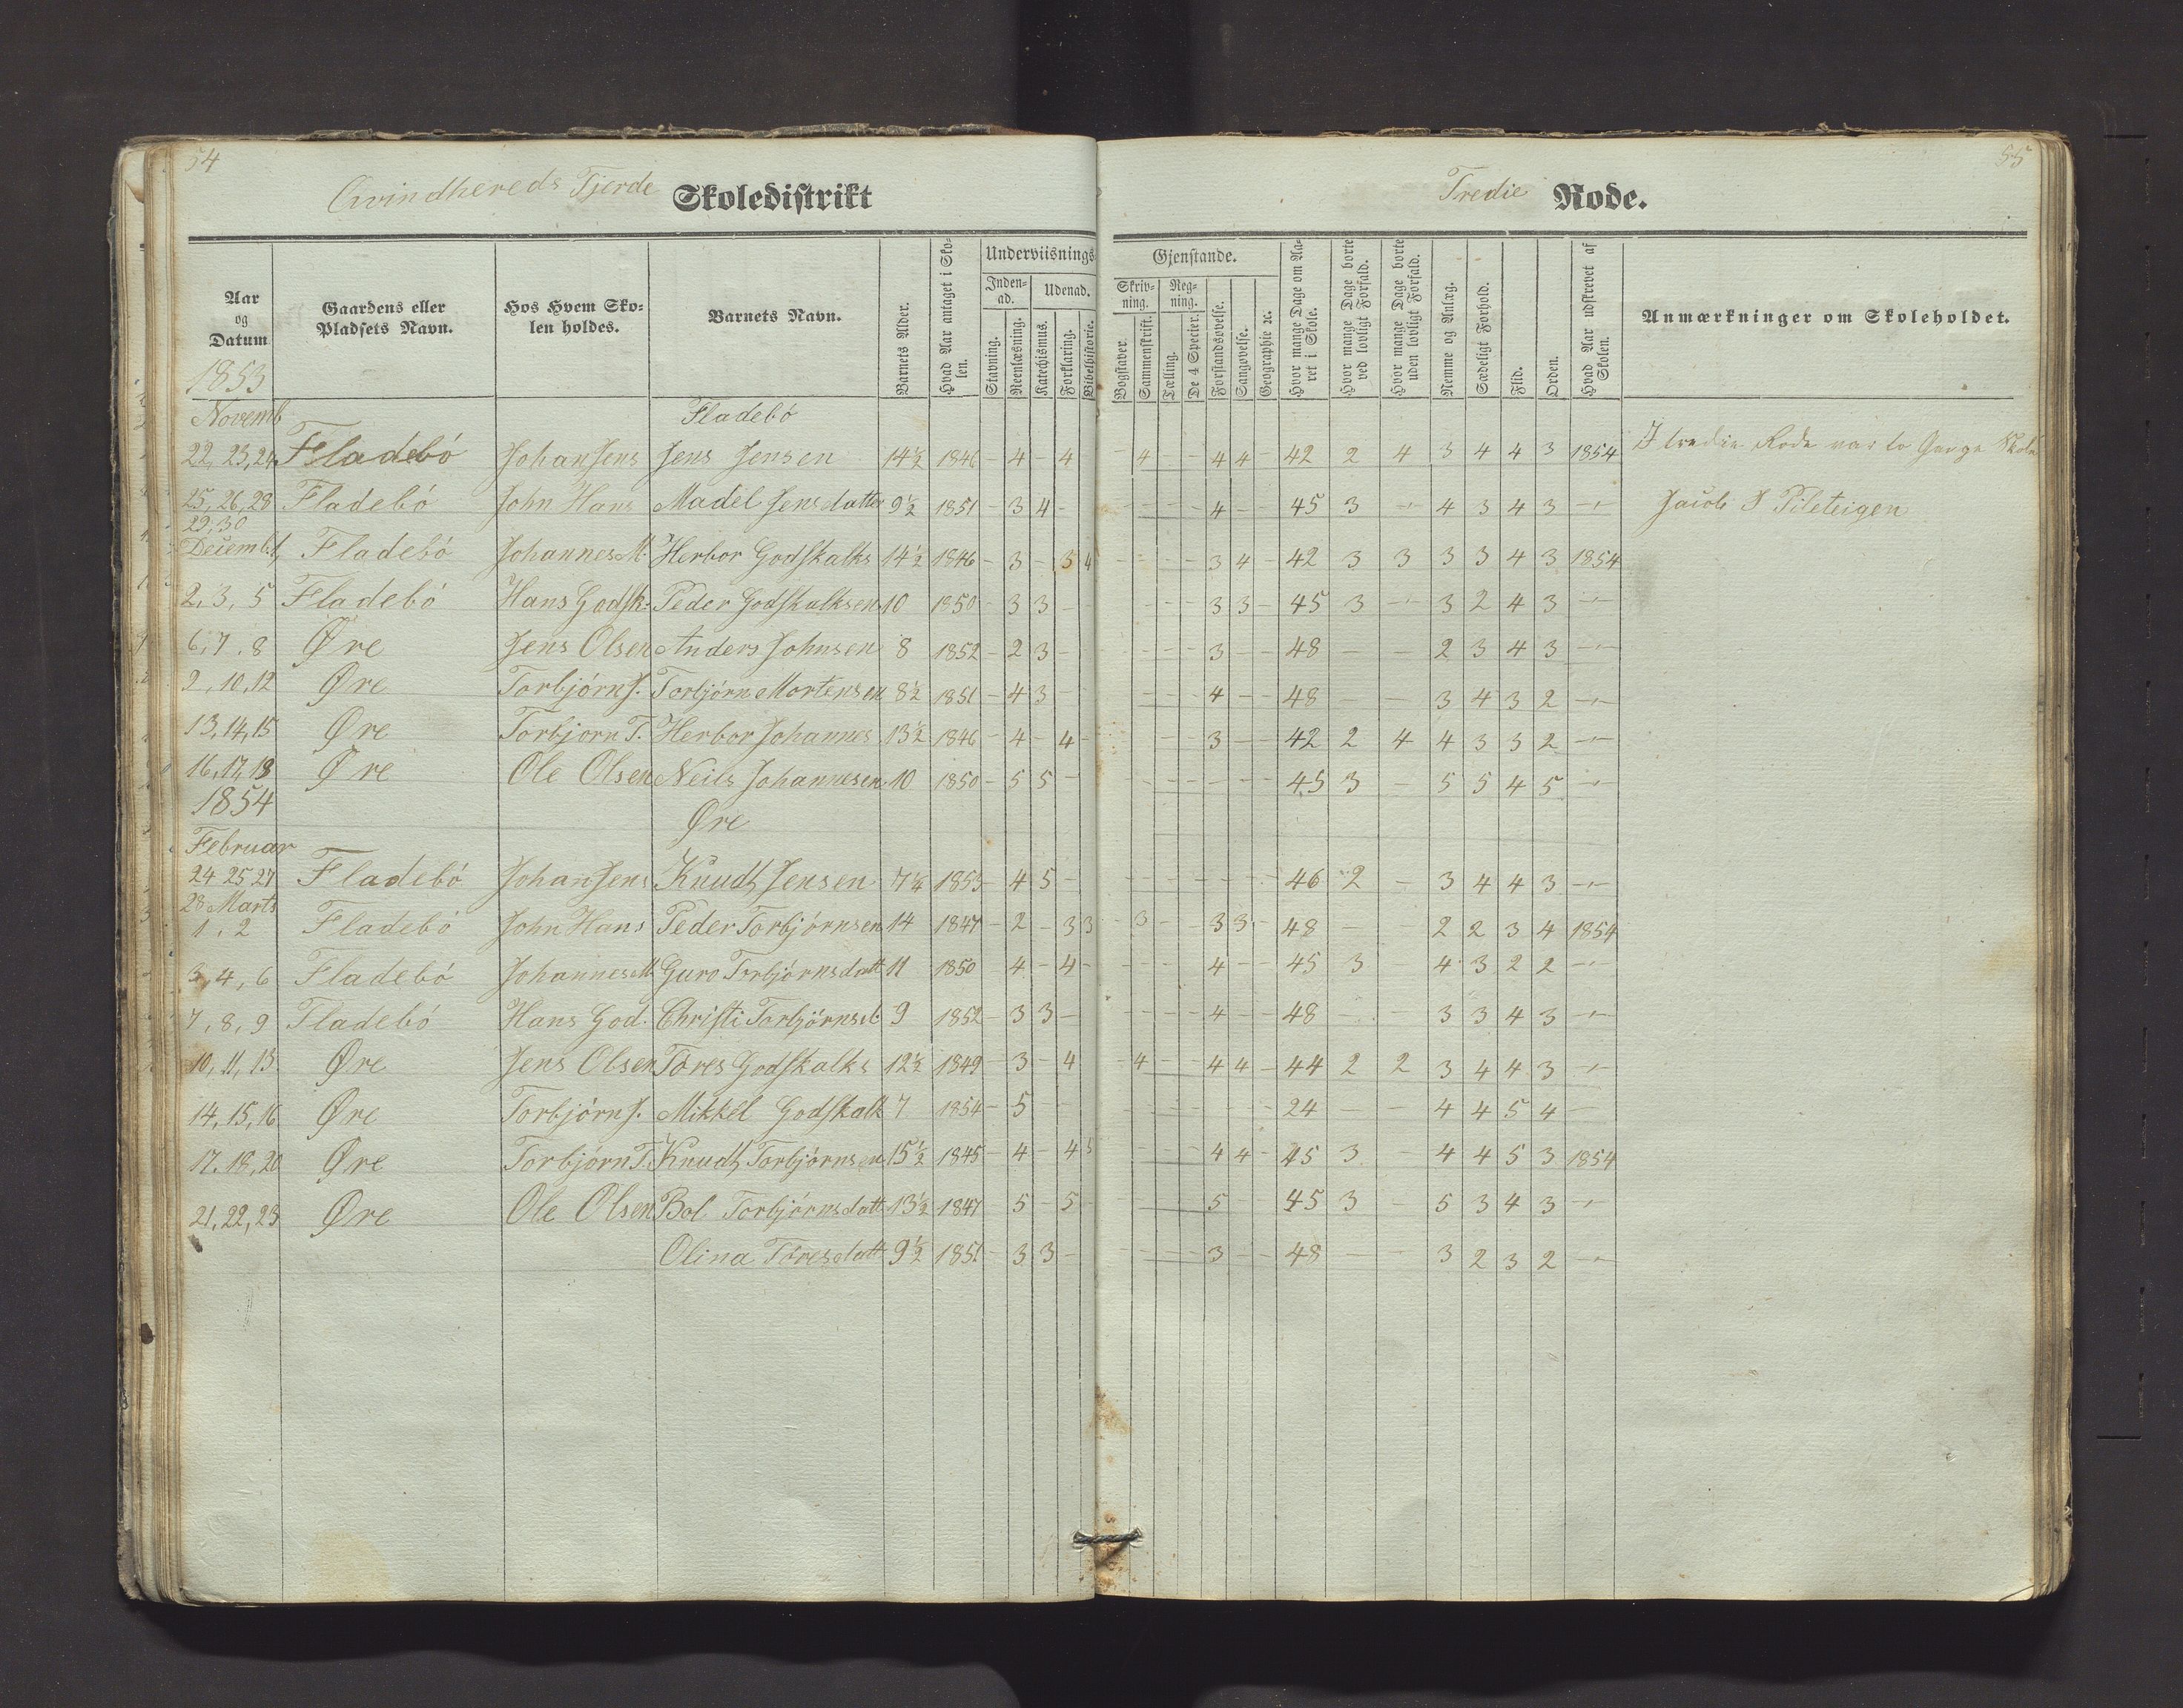 54
Qvindhereds Fjerde Skoledistrikt
Tredie Rode.
55
Aar og Datum
Gaardens eller Pladsets Navn.
Hos Hvem Skolen holdes.
Barnets Navn.
Barnets Alder.
Hvad Aar antaget i Skolen.
Underviisnings-
Gjenstande.
Indenad.
Udenad.
Skrivning.
Regning.
Stavning.
Reenlæsning.
Katechismus.
Forklaring.
Bibelhistorie.
Bogstaver.
Sammenskrift.
Tælling.
De 4 Specier.
Forstandsøvelse.
Sangøvelse.
Geographie ꝛc.
Hvor mange Dage om Aaret i Skole.
Hvor mange Dage borte ved lovligt Forfald.
Hvor mange Dage borte uden lovligt Forfald.
Nemme og Anlæg.
Sædeligt Forhold.
Flid.
Orden.
Hvad Aar udskrevet af Skolen.
Anmærkninger om Skoleholdet.
1853
Novemb
Fladebó
22, 23, 24 Fladebó Johan Jens Jens Jensen 14½ 1846 - 4 - 4 - 4 - - 4 4 - 42 2 4 3 4 4 3 1854 I tredie Rode var to Gange Skole
25, 26, 28 Fladebó John Hans Madel Jensdatter 9½ 1851 - 3 4 - - - - - 4 - - 45 3 - 4 3 4 3 - Jacob J Pileteigen
29, 30
Decemb. 1, Fladebó Johannes M. Herbor Godskalks 14½ 1846 - 3 - 3 4 - - - - 3 4 - 42 3 3 3 3 4 3 1854
2, 3, 5 Fladebó Hans Godsk: Peder Godskalksen 10 1850 - 3 3 - - - - - 3 3 - 45 3 - 3 2 4 3 -
6, 7, 8 Øre Jens Olsen Anders Johnsen 8 1852 - 2 3 - - - - - 3 - - 48 - - 2 3 4 3 -
9, 10, 12 Øre Torbjórn J. Torbjórn Mortensen 8½ 1851 - 4 3 - - - - - 4 - - 48 - - 3 4 3 2 -
13, 14, 15 Øre Torbjorn T. Herbor Johannes 13½ 1846 - 4 - 4 - - - 3 - - 42 2 4 4 3 3 2 -
16, 17, 18 Øre Ole Olsen Neils Johannesen 10 1850 - 5 5 - - - - - - - - 45 3 - 5 5 4 5 -
1854
Øre
Februar
24 25 27 Fladebó Johan Jens Knudt Jensen 7¼ 1853 - 4 5 - - - - - - - - 46 2 - 3 4 4 3 -
28 Marts
1, 2 Fladebó John Hans Peder Torbjórnsen 14 1847 - 2 - 3 3 - 3 - - 3 3 - 48 - - 2 2 3 4 1854
3, 4, 6 Fladebó Johannes M Guro Torbjórnsdatt 11 1850 - 4 - 4 - - - - - 4 - - 45 3 - 4 3 2 2 -
7, 8, 9 Fladebó Hans God. Christi Torbjórnsd. 9 1852 - 3 3 - - - - - 4 - - 48 - - 3 3 4 3 -
10, 11, 13 Øre Jens Olsen Tóres Godskalks 12½ 1849 - 3 - 4 - 4 - - 4 4 - 44 2 2 3 4 4 3 -
14, 15, 16 Øre Torbjórn J. Mikkel Godskalk 7 1854 - 5 - - - - - - - - - 24 - - 4 4 5 4 -
17, 18, 20 Øre Torbjórn T. Knudt Torbjórnsen 15½ 1845 - 4 - 4 5 - - - - 4 4 - 45 3 - 4 4 5 3 1854
21, 22, 23 Øre Ole Olsen Bol Torbjórnsdatt 13½ 1847 - 5 - 5 - - - - - 5 - - 45 3 - 5 3 4 3 -
Olina Tóresdatt 9½ 1851 - 3 3 - - - - - 3 - - 48 - - 3 2 3 2 -